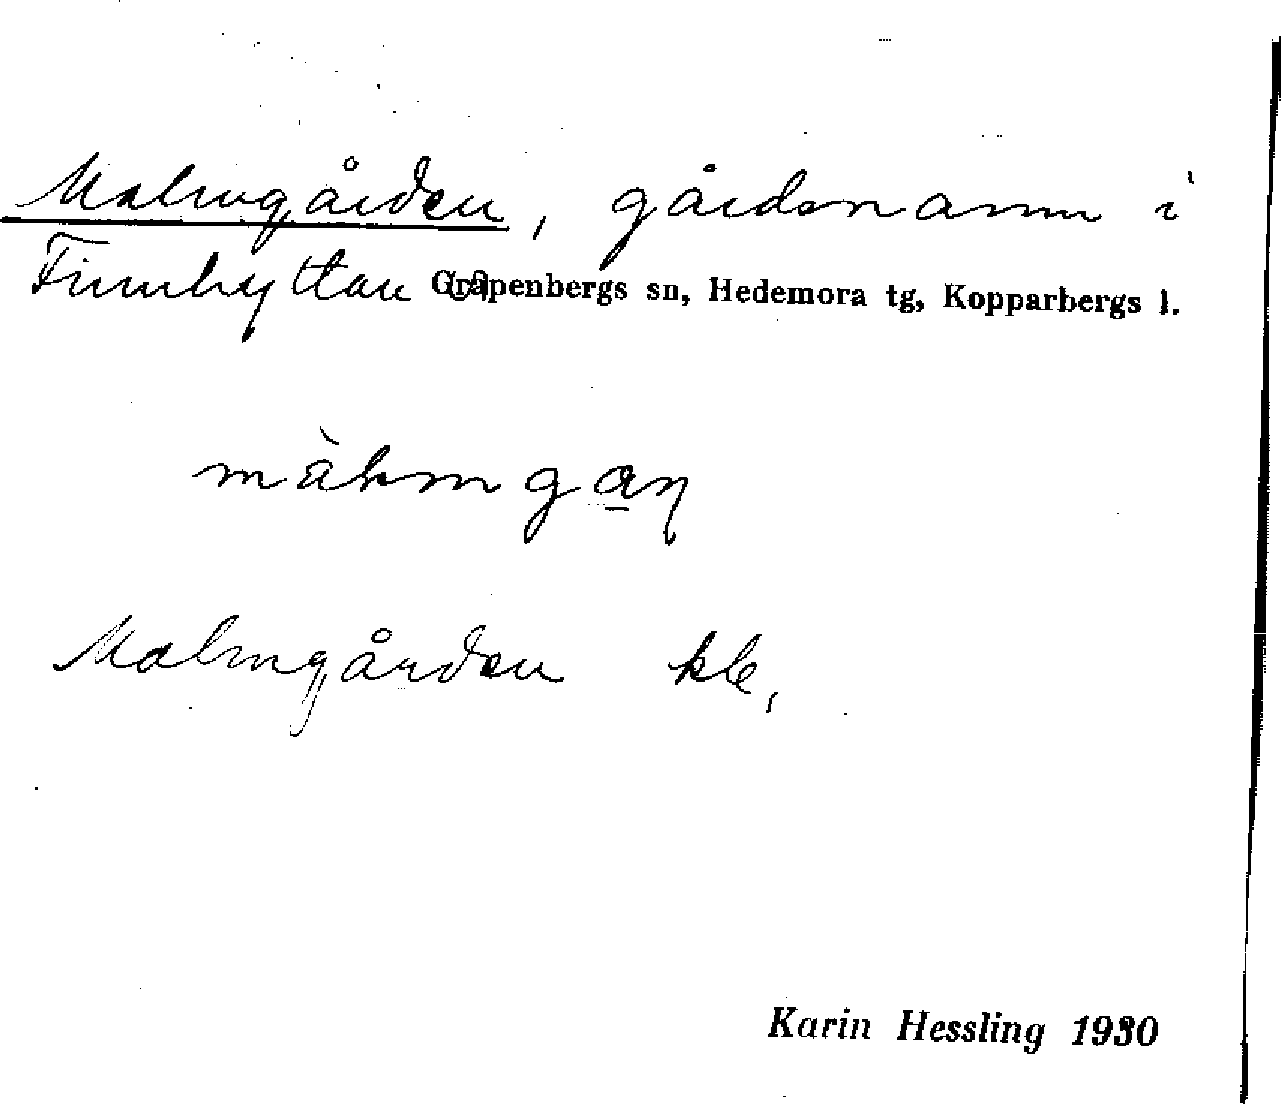 Malmgården, gårdsnamn i
Finnhyttan Grapenbergs sn, Hedemora tg, Kopparbergs l.
Malmgården
Karin Hessling 1930